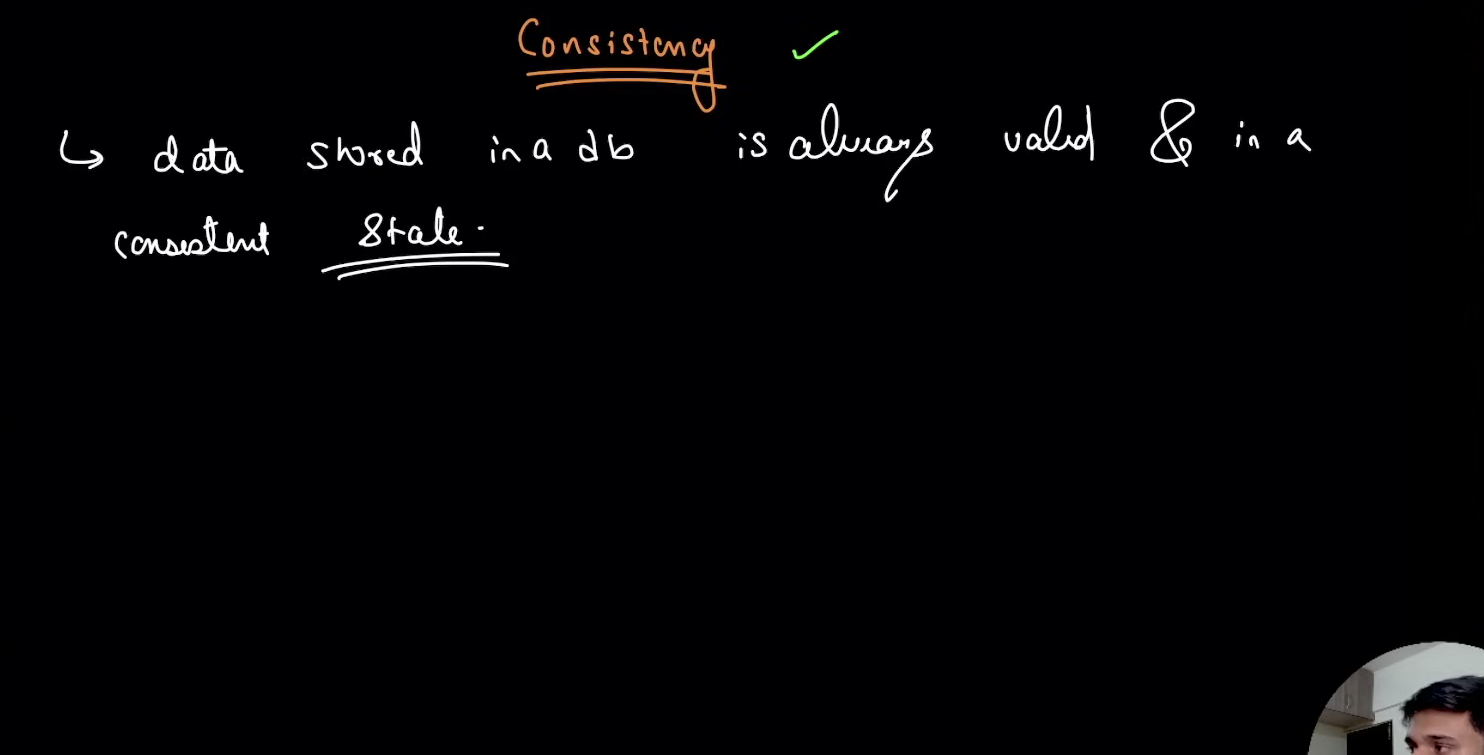 Consistency
data stored in a db is always valid & in a
consistent State.